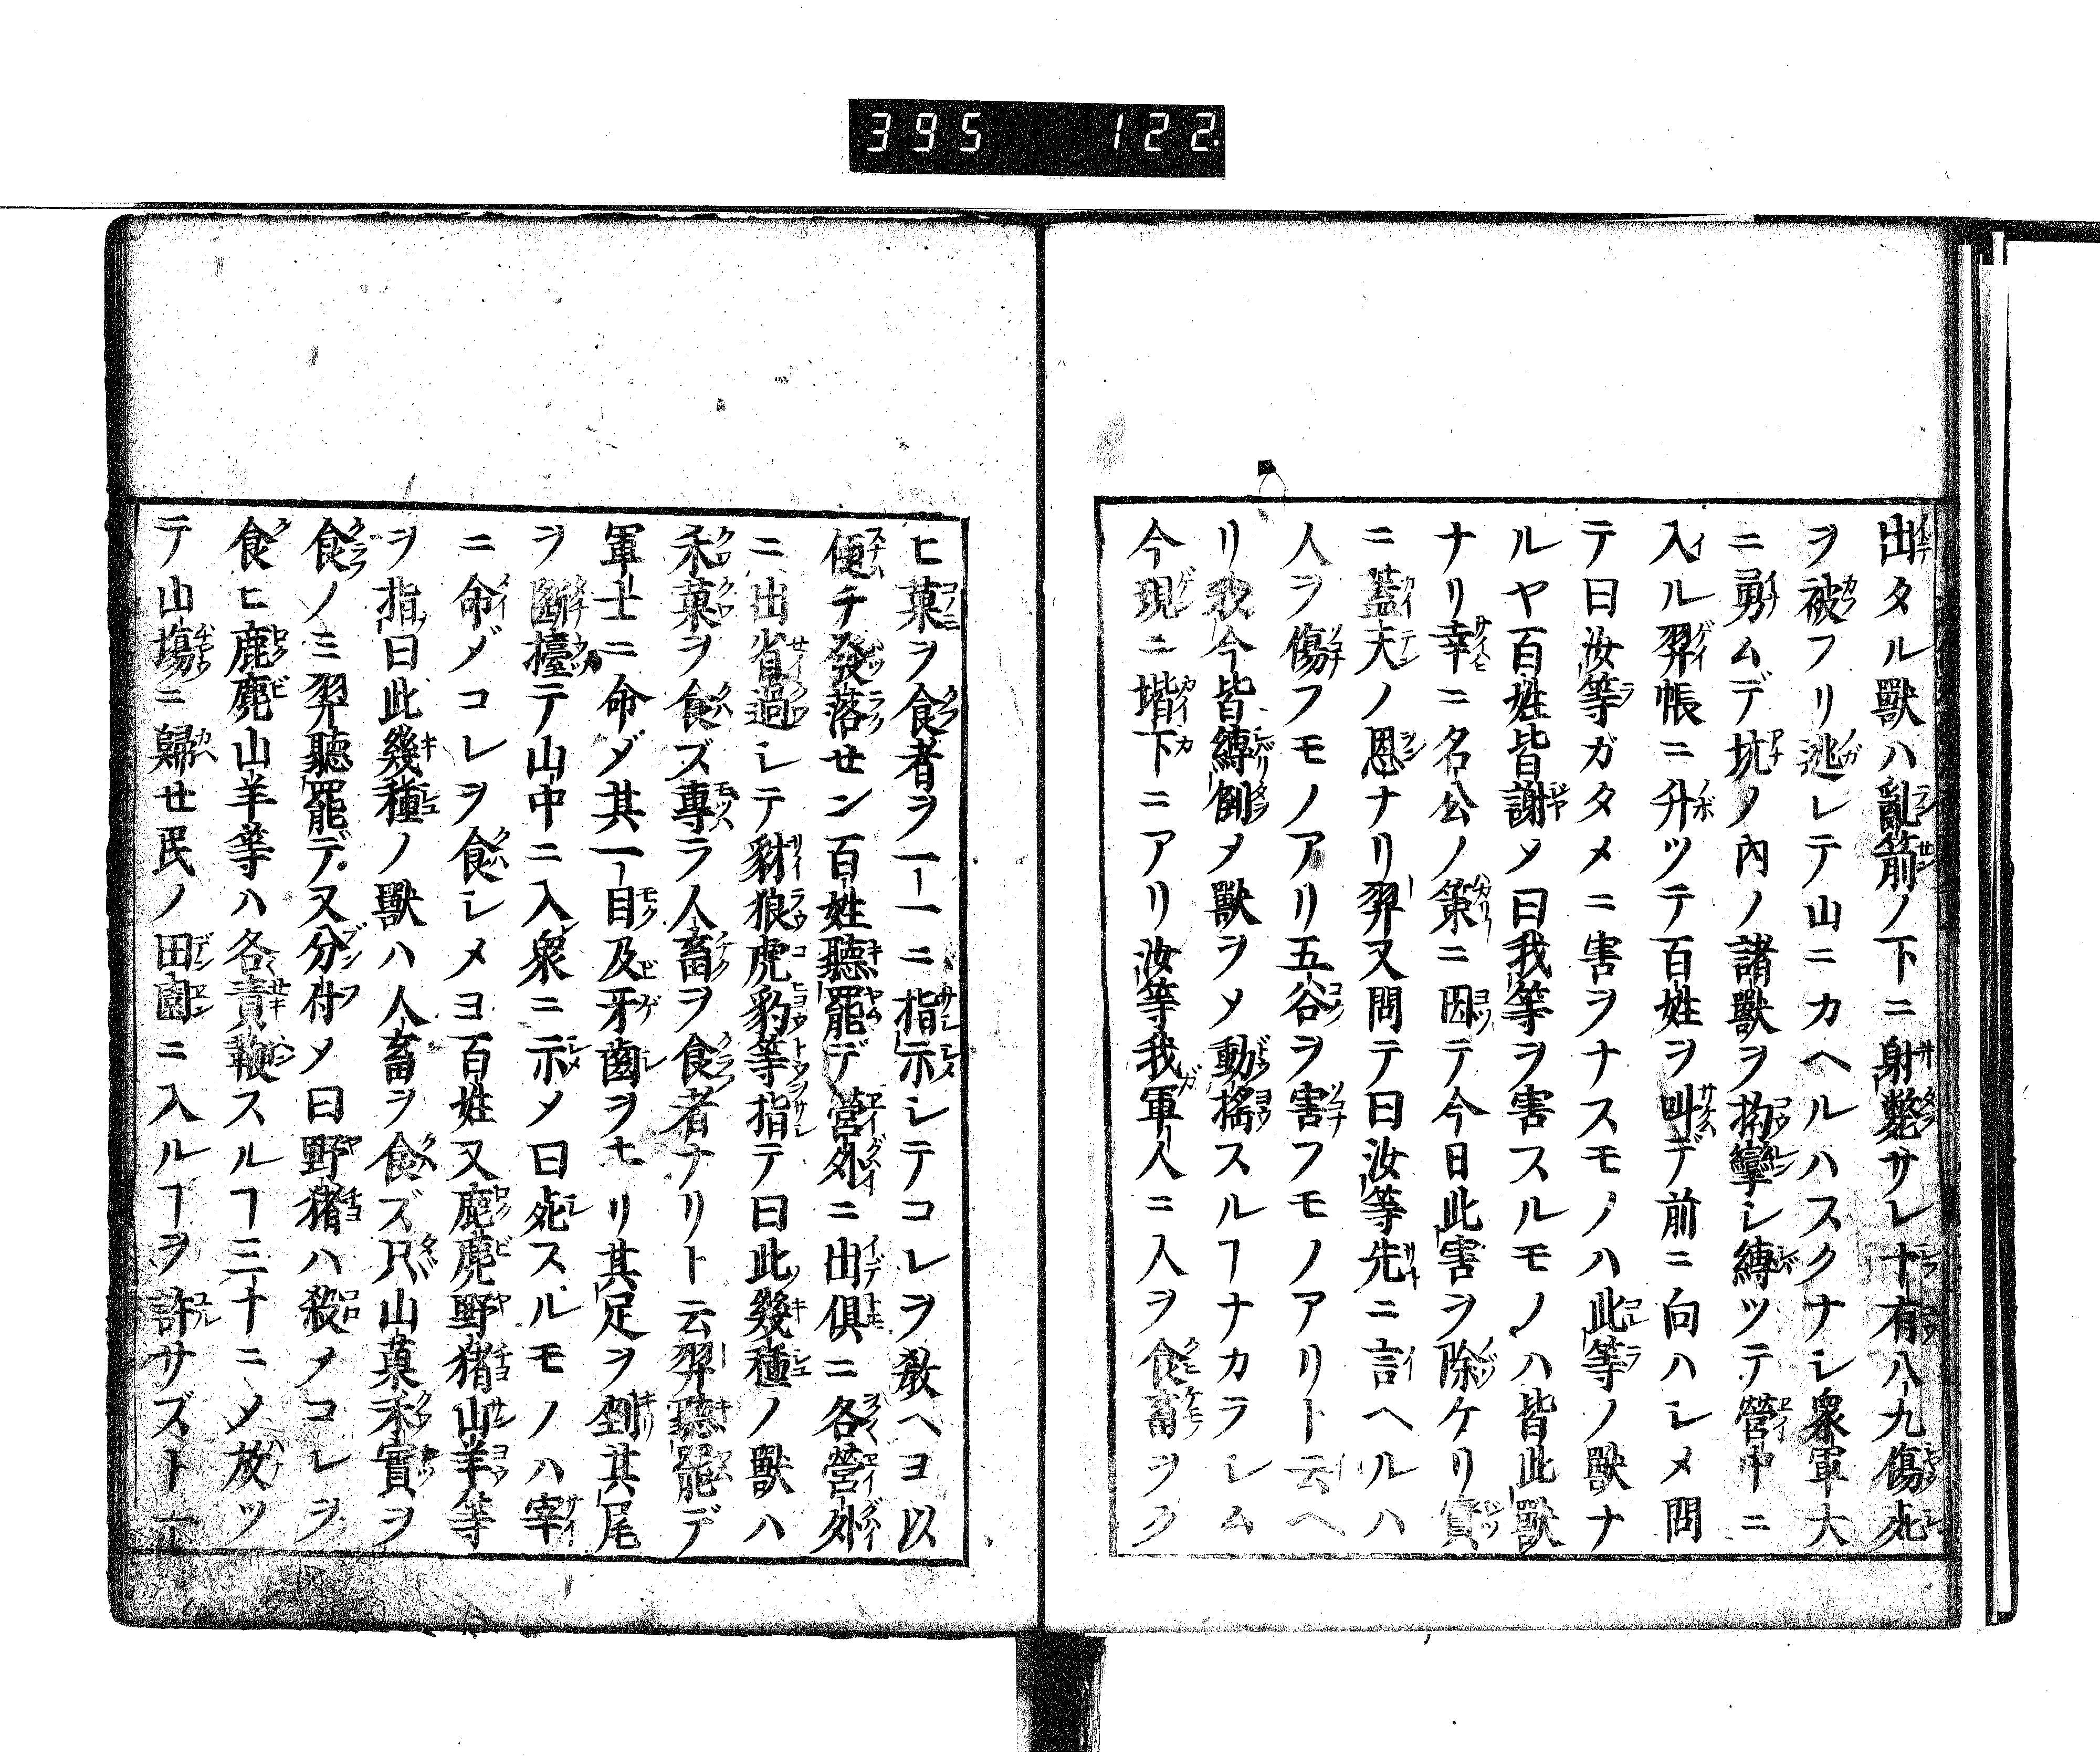 395 122
出タル獸ハ亂箭ノ下ニ射斃サレ十有八九傷死
ヲ被フリ逃レテ山ニカヘルハスクナシ衆軍大
ニ勇ムデ坑ノ內ノ諸獸ヲ拘攣シ縛ツテ營中ニ
入ル羿帳ニ升ツテ百姓ヲ叫デ前ニ向ハシメ問
テ曰汝等ガタメニ害ヲナスモノハ此等ノ獸ナ
ルヤ百姓皆謝メ曰我等ヲ害スルモノハ皆此獸
ナリ幸ニ名公ノ策ニ因デ今日此害ヲ除ケリ實
ニ蓋天ノ恩ナリ羿又問テ曰汝等先ニ言ヘルハ
人ヲ傷フモノアリ五谷ヲ害フモノアリト云ヘ
リ我今皆縛倒メ獸ヲメ動搖スルヿナカラシム
今現ニ堦下ニアリ汝等我軍人ニ入ヲ食畜ヲク
ヒ菓ヲ食者ヲ一一ニ指示シテコレヲ敎ヘヨ以
便チ發落セン百姓聽罷デ營外ニ出俱ニ各營外
ニ出省過シテ豺狼虎豹等指テ曰此幾種ノ獸ハ
禾菓ヲ食ズ專ラ人畜ヲ食者ナリト云羿聽罷デ
軍士ニ命ヂ其一目及牙齒ヲ七リ其足ヲ剉其尾
ヲ斷檯テ山中ニ入衆ニ示メ曰死スルモノハ宰
ニ命ヂコレヲ食シメヨ百姓又鹿麂野猪山羊等
ヲ指曰此幾種ノ獸ハ人畜ヲ食ズ只山菓禾實ヲ
食ノミ羿聽罷デ又分付メ曰野猪ハ殺メコレヲ
食ヒ鹿麂山羊等ハ各責鞭スルヿ三十ニメ放ツ
テ山塲ニ歸セ民ノ田園ニ入ルヿヲ許サズト一